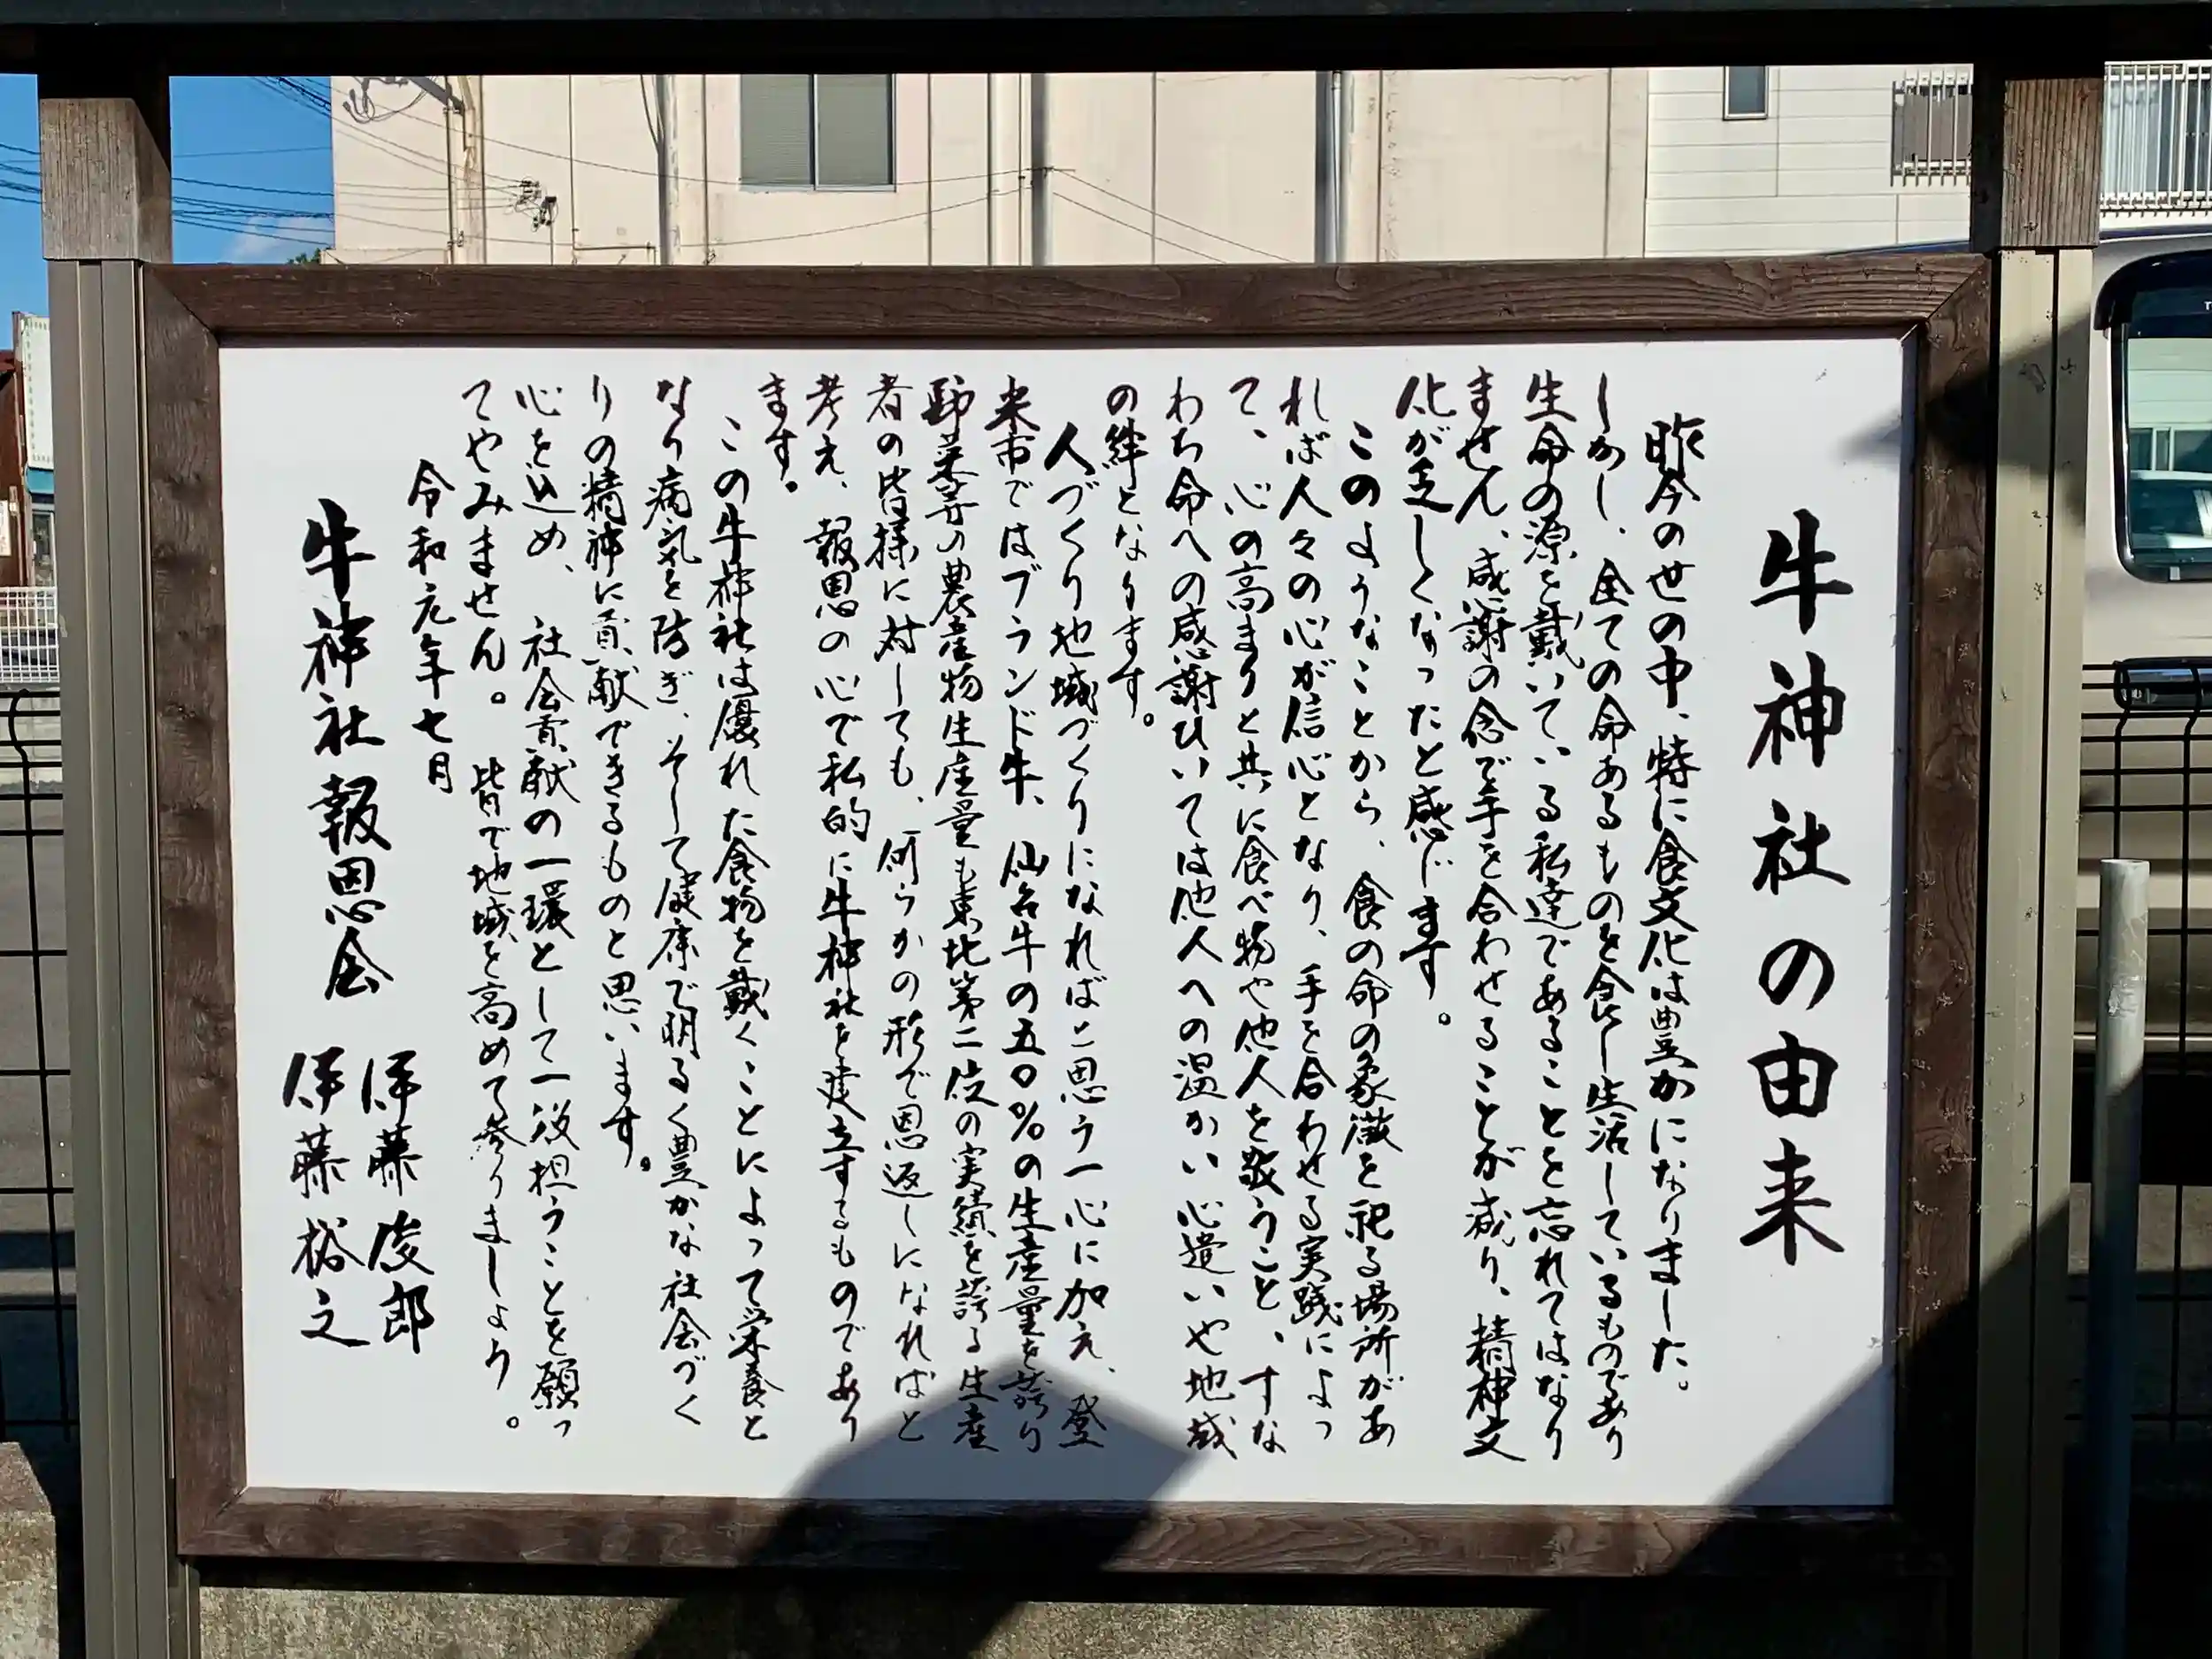 牛神社の由来
昨今の世の中、特に食文化は豊かになりました。
しかし、全ての命あるものを食し生活しているものであり
生命の源を戴いている私達であることを忘れてはなり
ません、感謝の念で手を合わせることが減り、精神文
化が乏しくなったと感じます。
このようなことから、食の命の象徴を祀る場所があ
れば人々の心が信心となり、手を合わせる実践によっ
て、心の高まりと共に食べ物や他人を敬うこと、すな
わち命への感謝ひいては他人への温かい心遣いや地域
の絆となります。
人づくり地域づくりになればと思う一心に加え、登
米市ではブランド牛、仙台牛の五〇%の生産量を誇り
野菜等の農産物生産量も東北第二位の実績を誇る生産
者の皆様に対しても、何らかの形で恩返しになればと
考え、報恩の心で私的に牛神社を建立するものであり
ます。
この牛神社は優れた食物を戴くことによって栄養と
なり病気を防ぎ、そして健康で明るく豊かな社会づく
りの精神に貢献できるものと思います。
心を込め、社会貢献の一環として一役担うことを願っ
てやみません。皆で地域を高めて参りましょう。
令和元年七月
牛神社報恩会 伊藤俊郎
伊藤裕之